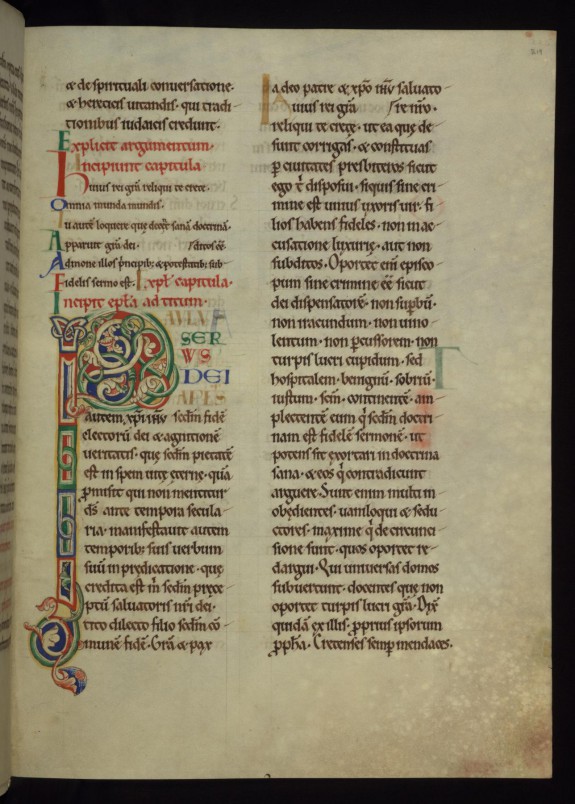 & de spirituali conuersatione·
& hereticis uitandis· qui tradi
tionibus iudaicis credunt·
Explicit argumentum·
Incipiunt capitula
Huius rei gr̄a reliqui te crete·
Omnia munda mundis·
Tu autē loquere que decet sanā doctrinā·
Apparuit gr̄a dei
Admone illos p̄ncipib; & potestatib; sub
Fidelis sermo est· Expt̄ capitula·
Incipit epl̄a ad titum·
PAULUS
SER
VVS
DEI
APLS
autem xp̄i ih̄u sedm̄ fidē
electorū dei & agnitionē
ueritatis· que sedm̄ pietatē
est in spem uite eterne· quā
p̄misit qui non mentitur
d̄s ante tempora secula
ria· manifestauit autem
temporib; suis uerbum
suū in predicatione· que
credita est m̄ sedm̄ prece
ptū saluatoris nr̄i dei·
tito dilecto filio sedm̄ cō
munē fidē· Gr̄a & pax
a deo patre & xp̄o ih̄u saluato
Huius rei gr̄a re nr̄o·
reliqui te crete· ut ea que de
sunt corrigas· & constituas
p ciuitates presbiteros sicut
ego t̄ disposui· siquis sine cri
mine est unius uxoris uir· fi
lios habens fideles· non in ac
cusatione luxurię· aut non
subditos· Oportet eni episco
pum sine crimine eē sicut
dei dispensatorē· non supbū·
non iracundum· non uino
lentum· non pcussorem· non
turpis lucri cupidum· sed
hospitalem· benignū· sobriū·
iustum· scm̄· continentē· am
plectentē eum q̄ sedm̄ doctri
nam est fidelē sermonē· ut
potens sit exortari in doctrina
sana· & eos q̄ contradicunt
arguere· Sunt enim multi in
obędientes· uaniloqui & sedu
ctores· maxime q̄ de circunci
sione sunt· quos oportet re
dargui· Qui uniuersas domos
subuertunt· docentes que non
oportet turpis lucri gr̄a· Dix̄
quidā ex illis· pprius ipsorum
ppha· Cretenses semp mendaces·